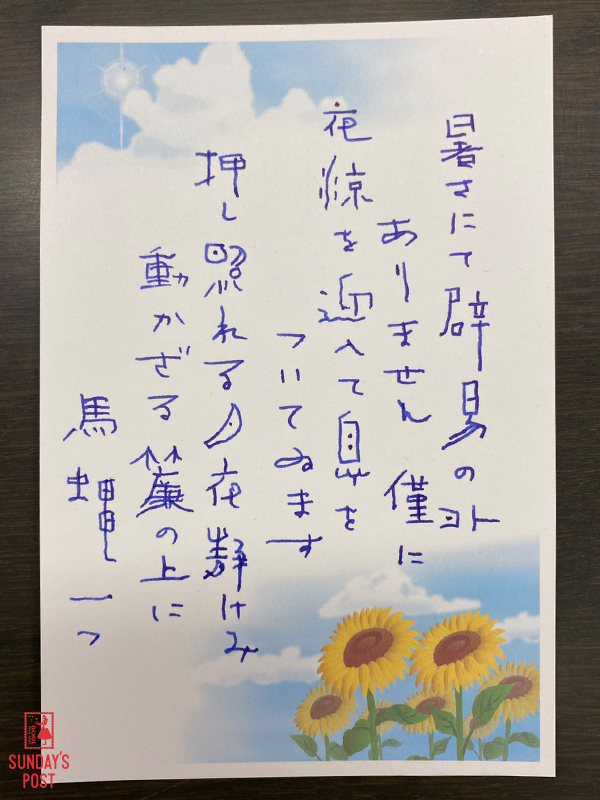 暑さにて辟易の外
ありません 僅に
夜涼を迎へて息を
ついてゐます
押し照れる月夜静けみ
動かざる簾の上に
馬蟬一つ
SUNDAY'S
POST